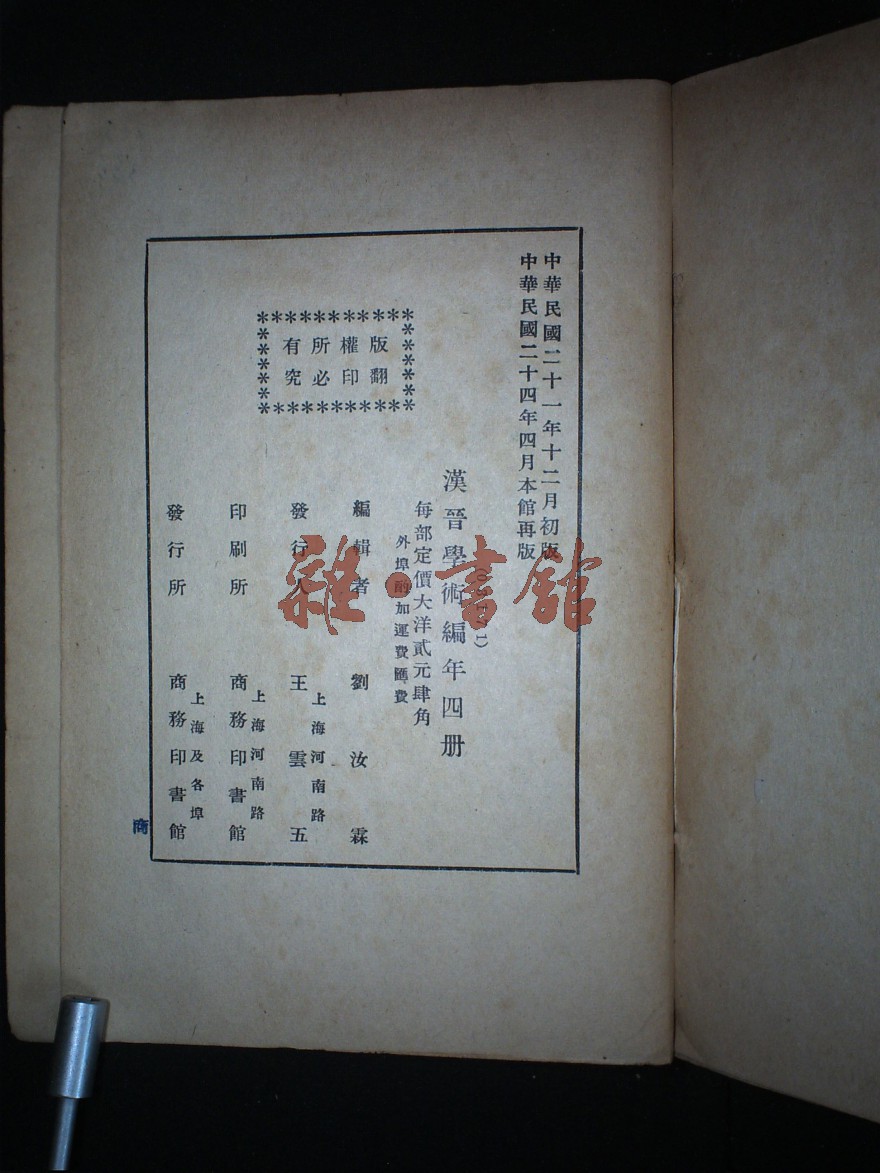 中華民國二十一年十二月初版
中華民國二十四年四月本館再版
漢晉學術編年四册
每部定價大洋貳元肆角
外埠酌加運費匯費
版權所有
翻印必究
編輯者 劉汝霖
發行人 王雲五
上海河南路
印刷所 商務印書館
上海河南路
發行所 商務印書館
上海及各埠
商
雜·書館